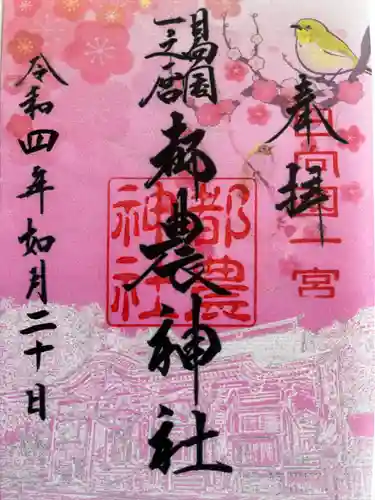 奉拝
日向国一宮
日向国
一之宮
都農神社
都農
神社
令和四年如月二十日